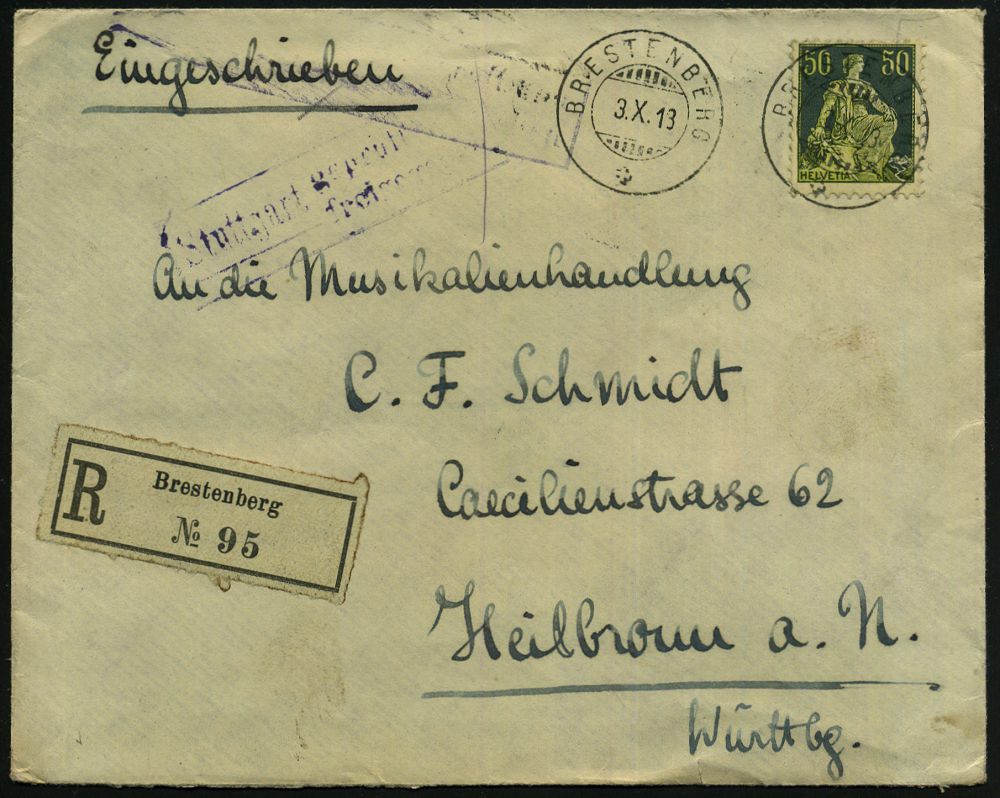 Eingeschrieben
BRESTENBERG
3.X.13
50 50
HELVETIA
Stuttgart geprüft
An die Musikalienhandlung
C. F. Schmidt
Caecilienstrasse 62
R Brestenberg
№ 95
Heilbronn a. N.
Württbg.